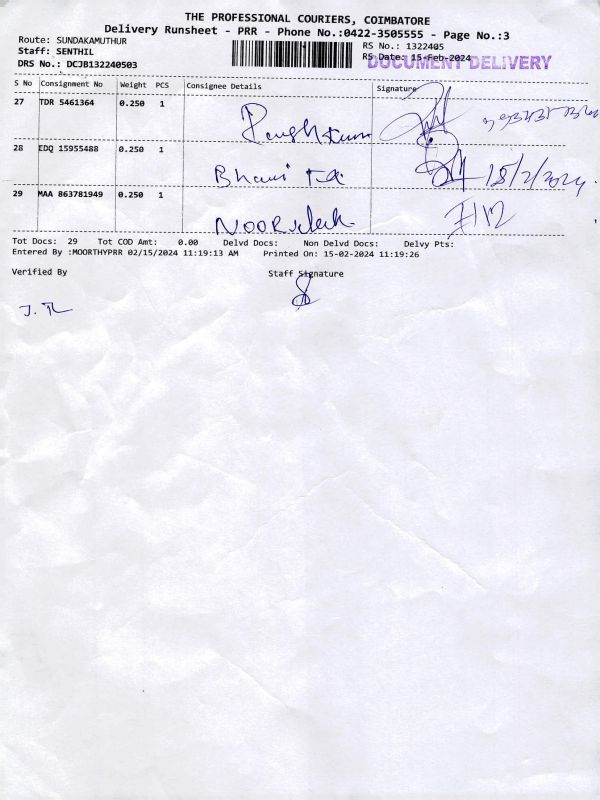 THE PROFESSIONAL COURIERS, COIMBATORE
Delivery Runsheet - PRR - Phone No.:0422-3505555 - Page No.:3
Route: SUNDAKAMUTHUR
RS No.: 1322405
Staff: SENTHIL
RS Date: 15-Feb-2024
DOCUMENT DELIVERY
DRS No.: DCJB132240503
S No Consignment No Weight PCS Consignee Details Signature
27 TDR 5461364 0.250 1
28 EDQ 15955488 0.250 1
Bhavi 15/2/2024
29 MAA 863781949 0.250 1
NOOR
Tot Docs: 29 Tot COD Amt: 0.00 Delvd Docs: Non Delvd Docs: Delvy Pts:
Entered By :MOORTHYPRR 02/15/2024 11:19:13 AM Printed On: 15-02-2024 11:19:26
Verified By Staff Signature